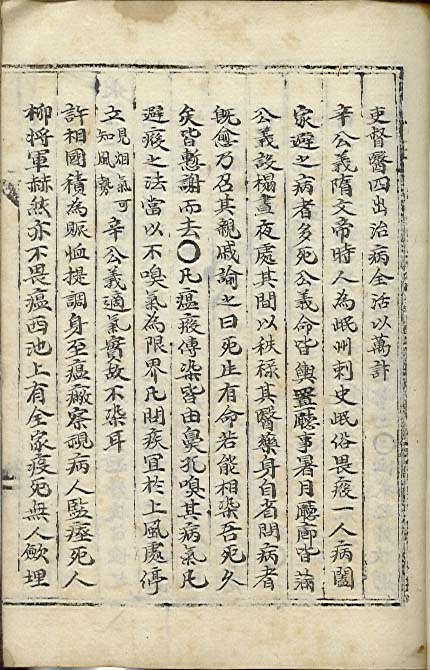 吏督醫四出治病全活以萬計
辛公義隋文帝時人為岷州刺史岷俗畏疫一人病闔
家避之病者多死公義命皆輿置廳事暑月廳廊皆滿
公義設榻晝夜處其間以秩祿其醫藥身自省問病者
旣愈乃召其親戚諭之曰死生有命若能相染吾死久
矣皆慙謝而去〇凡瘟疫傳染皆由鼻孔嗅其病氣凡
避疫之法當以不嗅氣為限界凡問疾宜於上風處停
立見烟氣可知風勢辛公義適氣實故不染耳
許相國積為賑恤提調身至瘟廠察視病人監痙死人
柳將軍赫然亦不畏瘟西池上有全家疫死無人歛埋